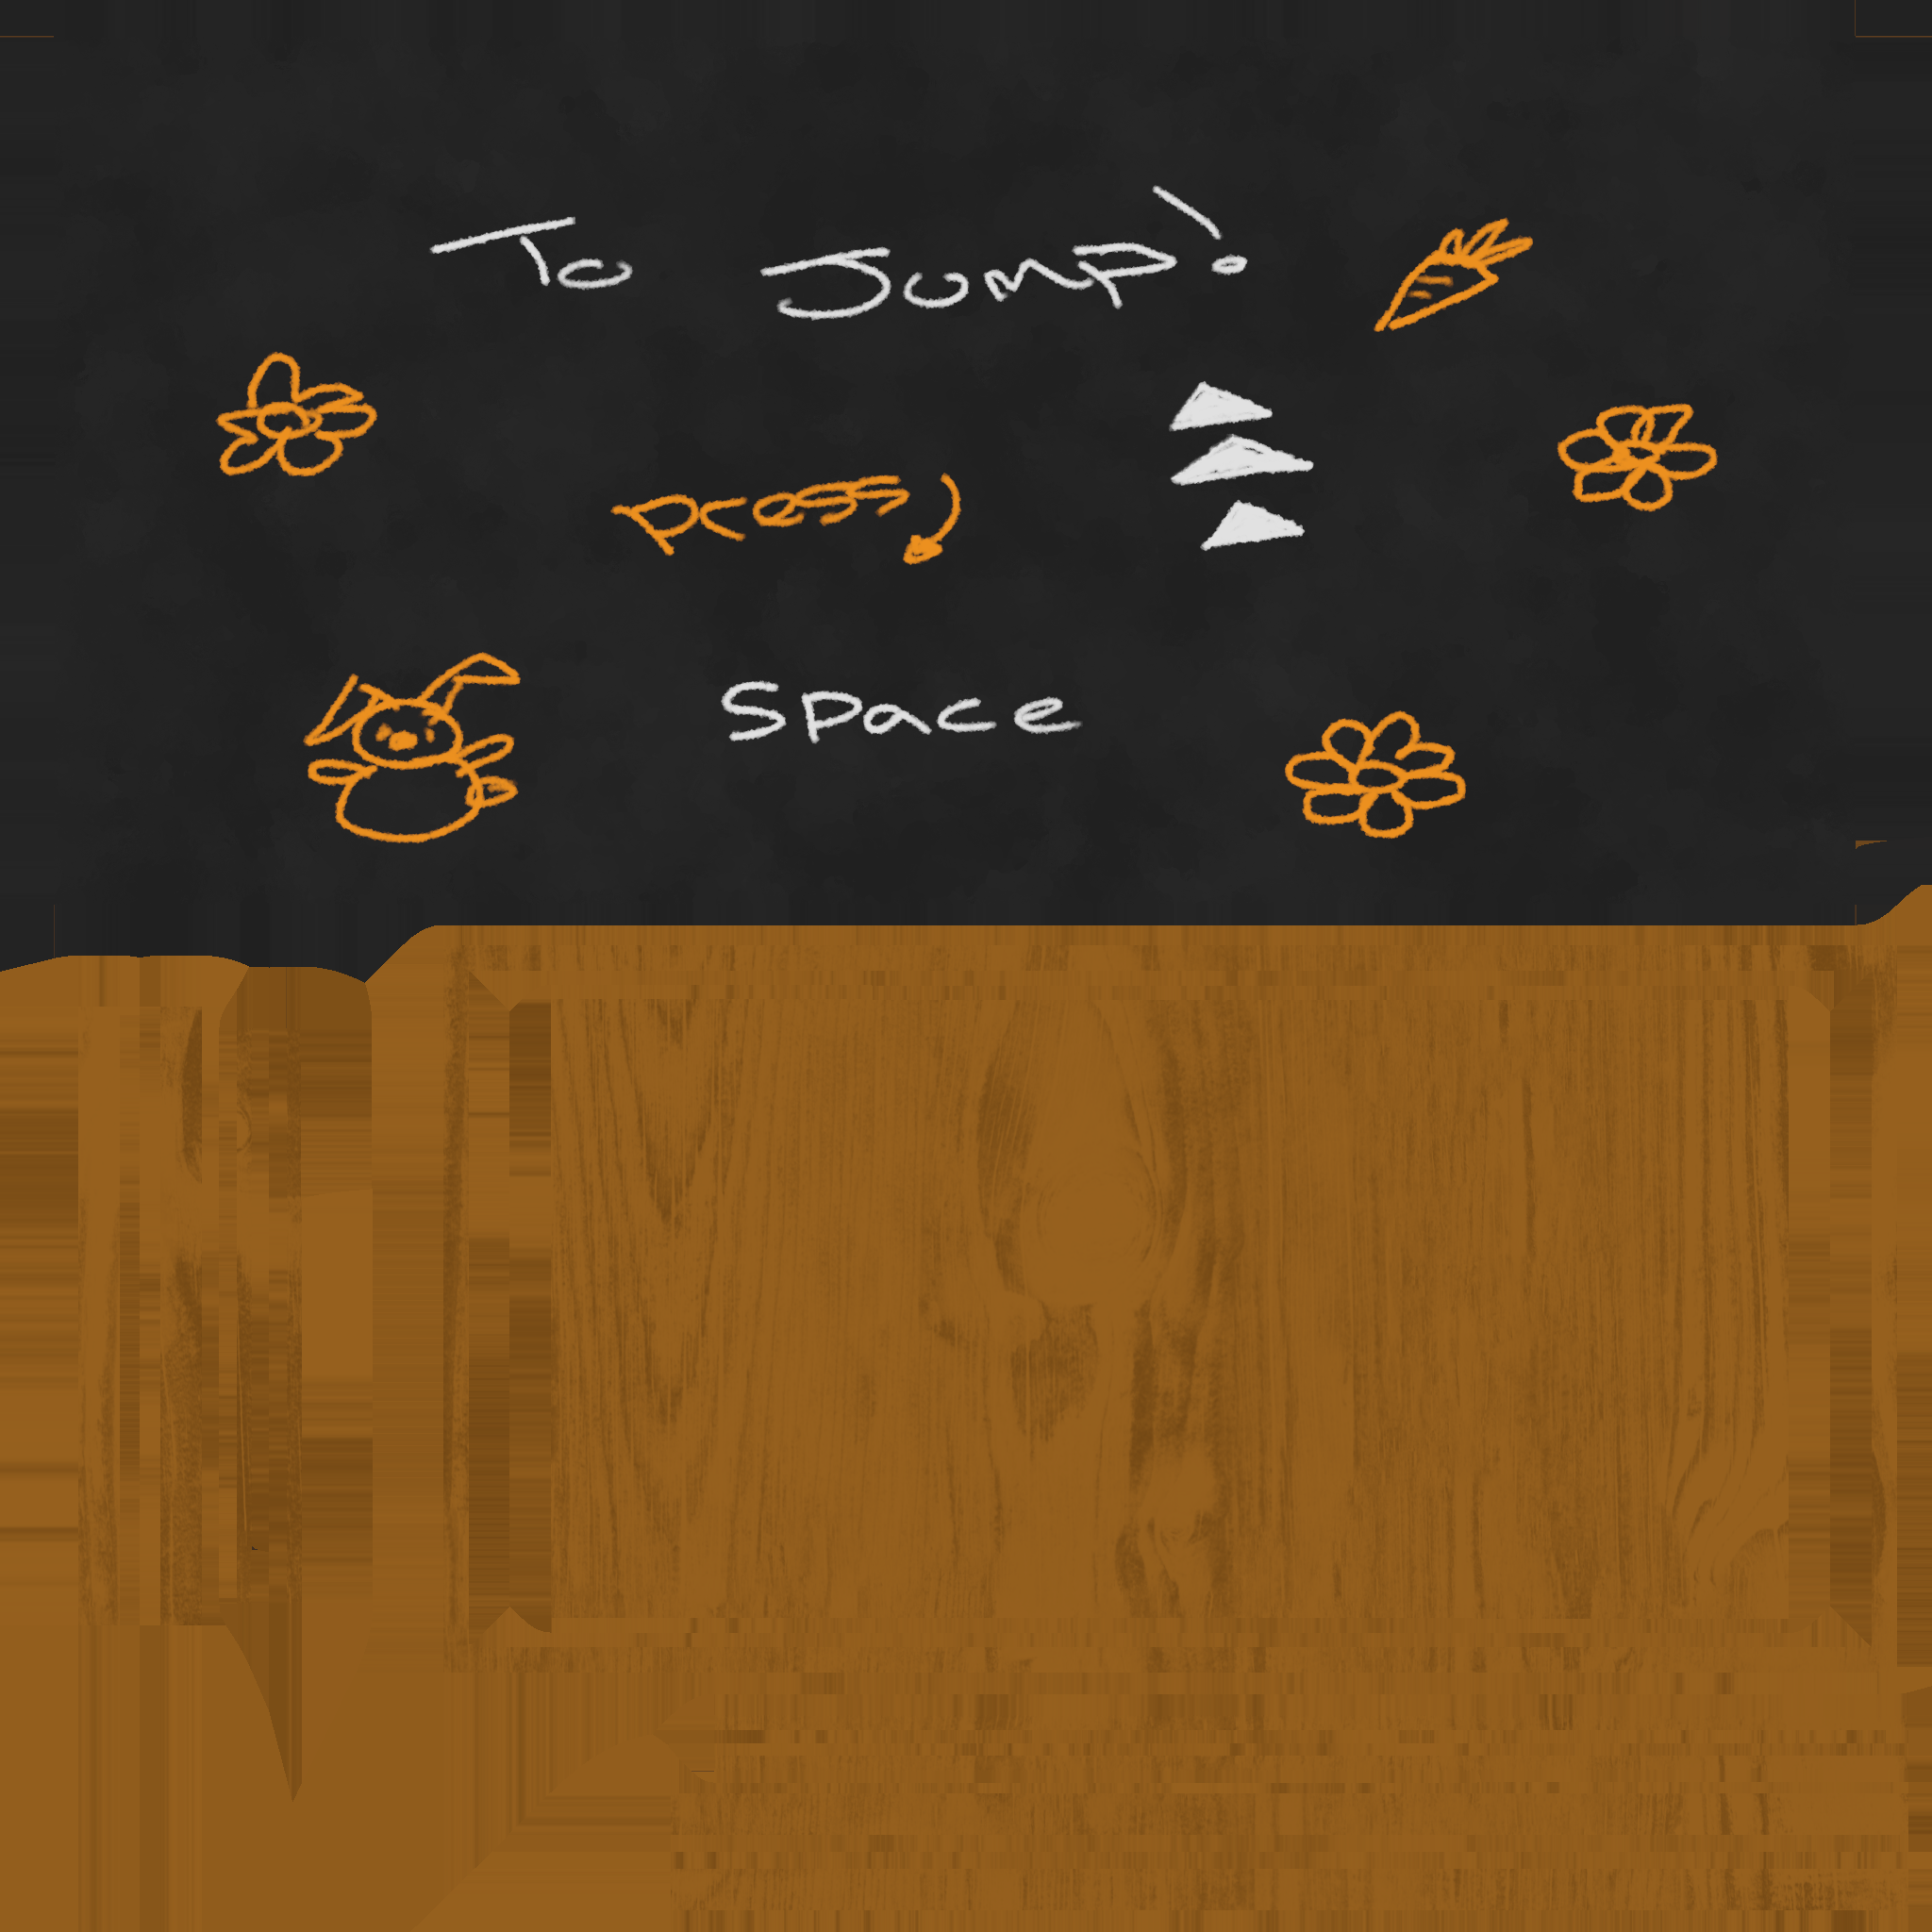 To Jump!
Press
Space